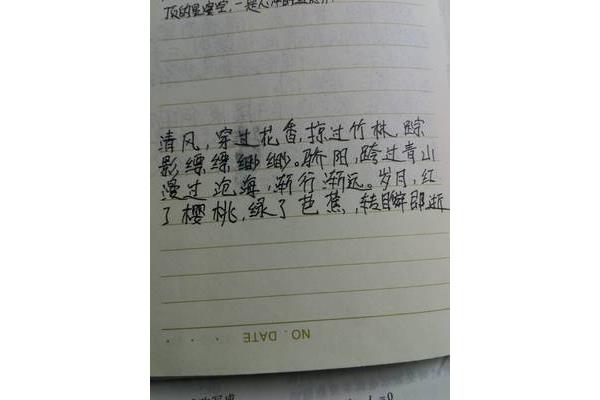 顶的星空,一是心中的道德
清风,穿过花香,掠过竹林,踪
影缥缥缈缈。骄阳,跨过青山
漫过沧海,渐行渐远。岁月,红
了樱桃,绿了芭蕉,转瞬即逝
NO. DATE